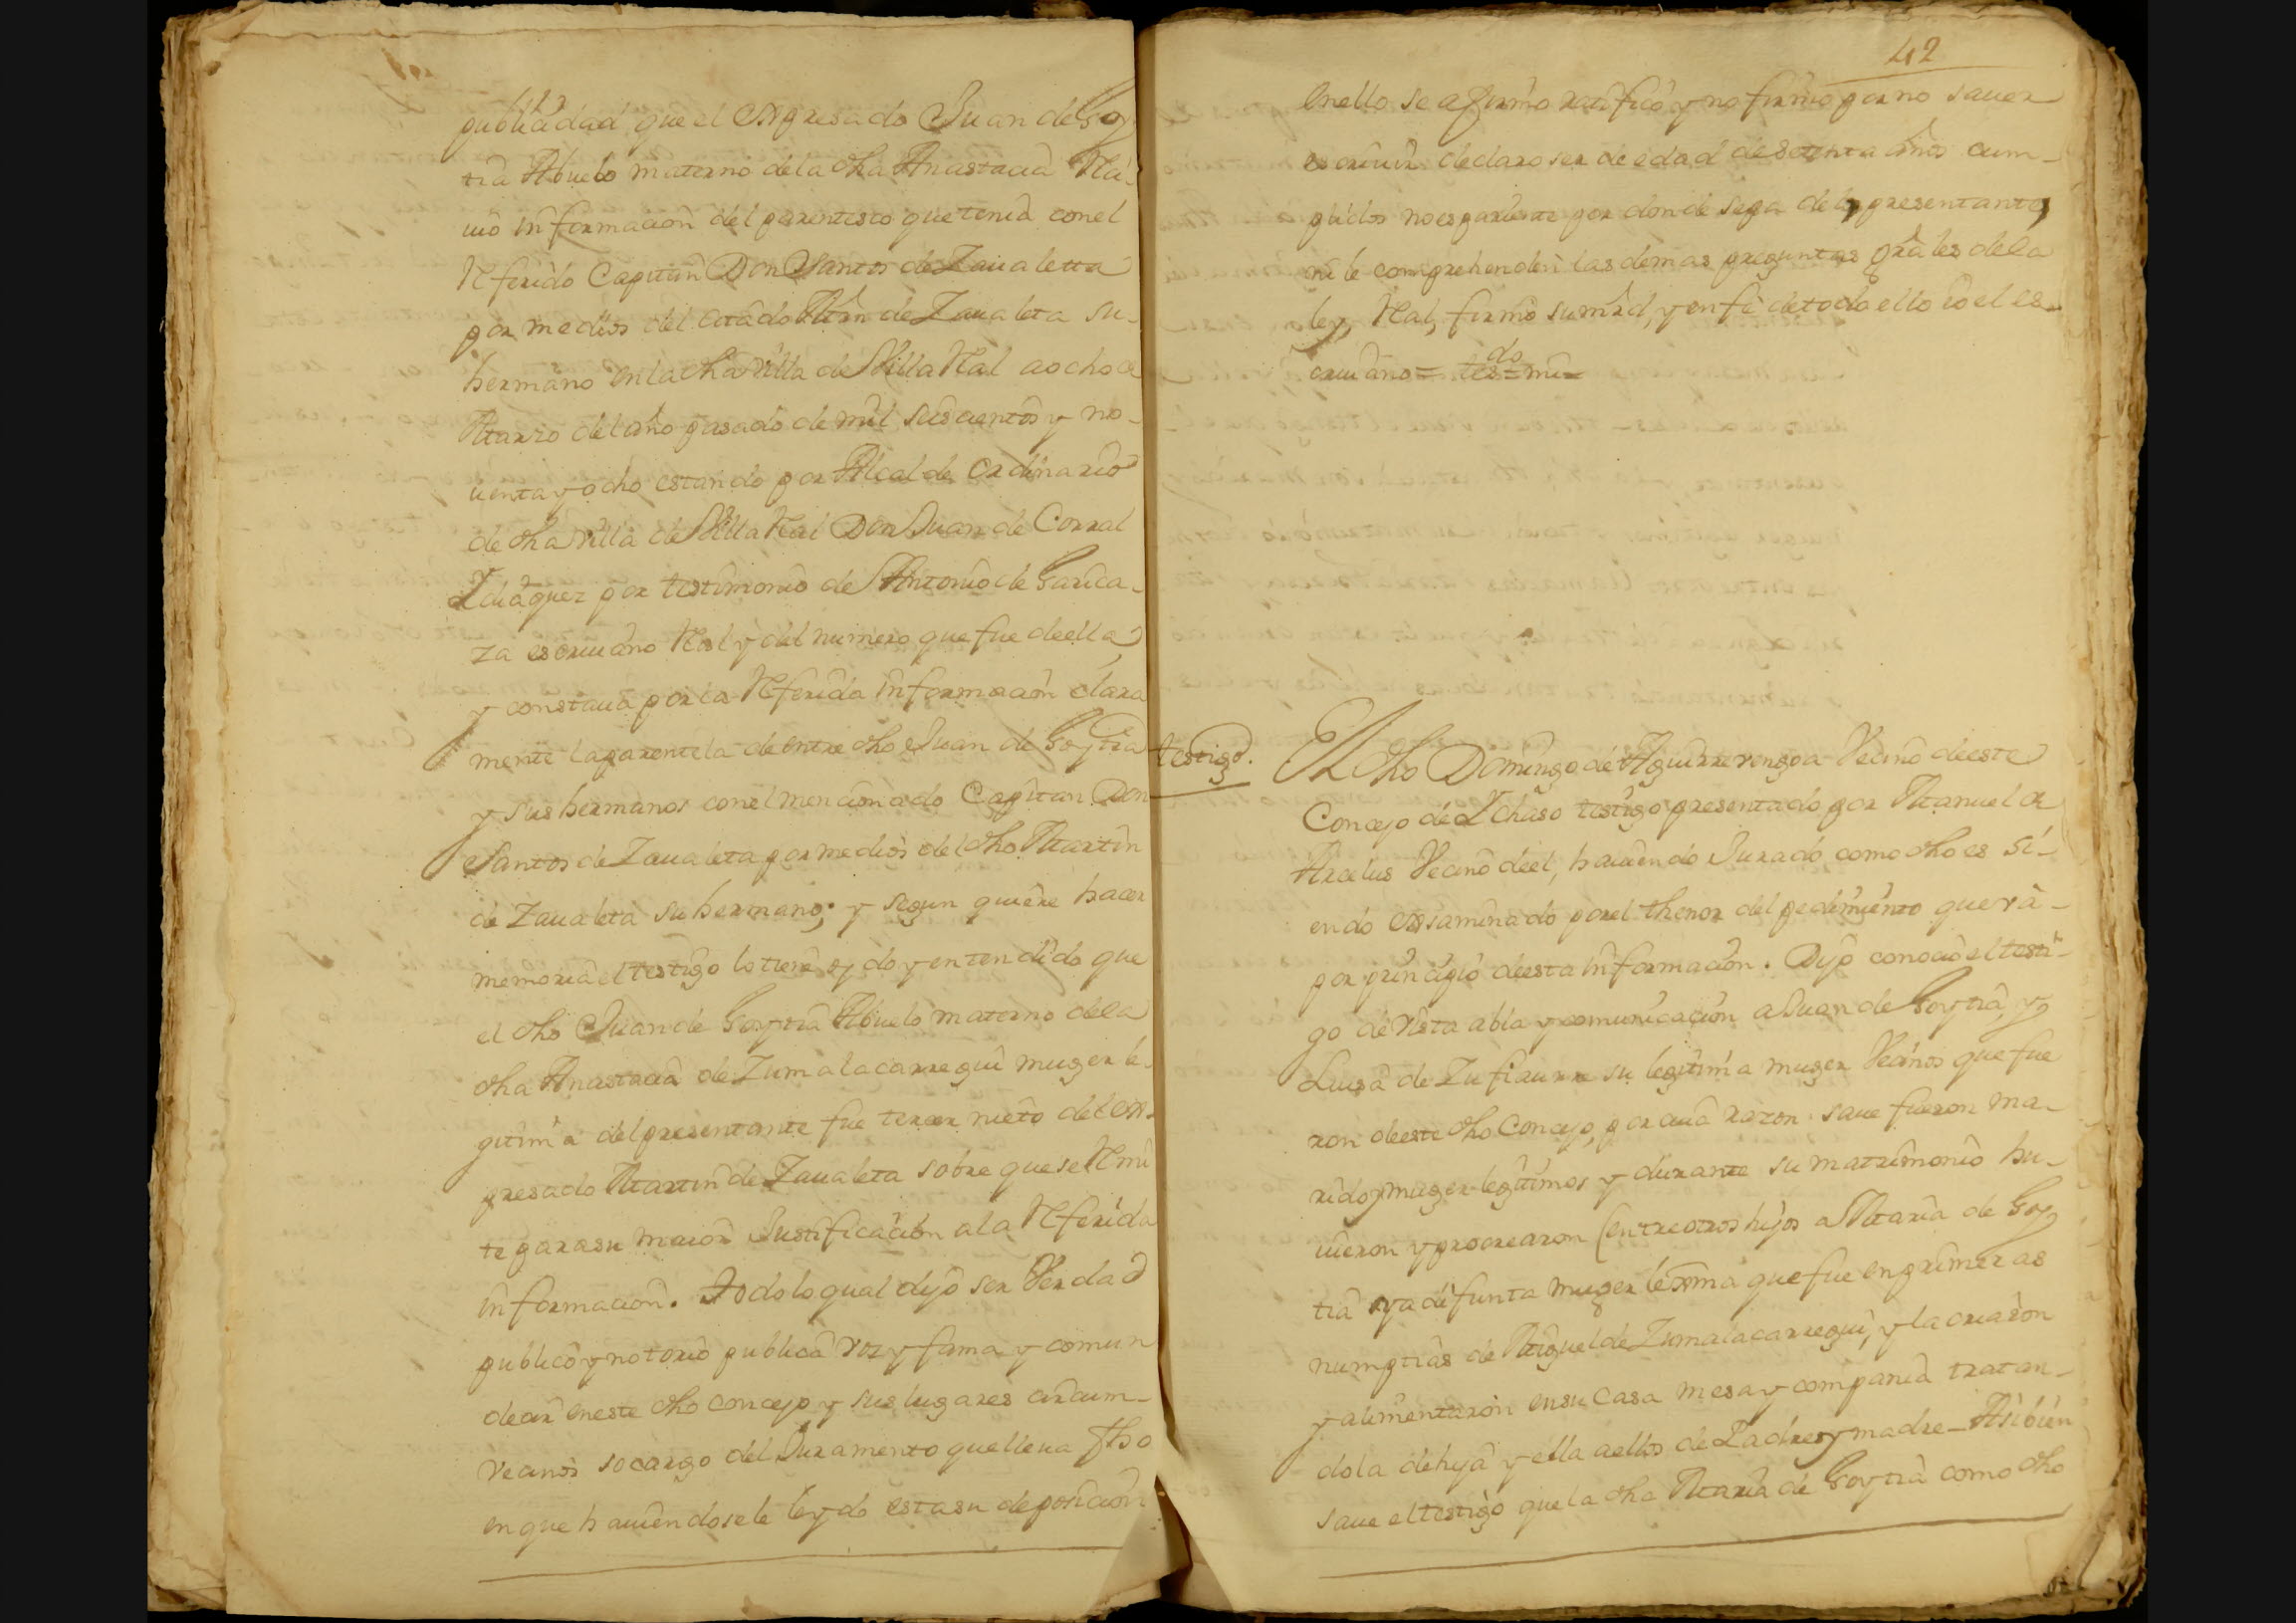 publicidad que el expresado Juan de Goy
tia Abuelo materno de la dha Anastacia Re-
uio informacion del parentesco que tenia con el
Referido Capitan Don Santos de Zaualetta
por medios del citado Mrn de Zaualeta su
hermano en la dha villa de Villa Real a ocho de
Marzo del año pasado de mil seiscientos y no-
uenta y ocho estando por Alcalde ordinario
de dha villa de Villa Real Don Juan de Corral
Idiaquez por testimonio de Antonio de Garica-
za escriuano Real y del numero que fue de ella
y constaua por la Referida informacion clara
mente la parentela de entre dho Juan de Goytia
y sus hermanos con el mencionado Capitan Don
Santos de Zaualeta por medios del dho Martin
de Zaualeta su hermano; y segun quiere hacer
memoria el testigo lo tiene oydo y entendido que
el dho Juan de Goytia Abuelo materno de la
dha Anastacia de Zumalacarregui muger le-
gitima del presentante fue tercer nieto del ex-
presado Martin de Zaualeta sobre que se Remi
te para su maior Justificacion a la Referida
informacion. Todo lo qual dijo ser Verdad
publico y notorio publica voz y fama y comun
decir en este dho concejo y sus lugares circum-
vecinos so cargo del Juramento que lleua fho
en que hauiendosele leydo esta su deposicion
42
en ello se afirmo ratificó y no firmo por no sauer
escriuir declaro ser de edad de setenta años cum-
plidos no es pariente por donde sepa de los presentantes
ni le comprehenden las demas preguntas grâles de la
ley, Real, firmo su mrd, y en fé de todo ello io el es-
criuano = tes=mi= do
testigo.
El dho Domingo de Aguirrerengoa Vecino de este
Concejo de Ichaso testigo presentado por Manuel de
Arcelus Vecino de el, hauiendo Jurado como dho es si-
endo exsaminado por el thenor del pedimiento que va
por principio de esta informacion. Dijo conocio el testi-
go de vista abla y comunicacion a Juan de Goytia, y
Luisa de Zufiaurre su legitima muger Vecinos que fue
ron de este dho Concejo, por cuia razon saue fueron ma-
rido y muger legitimos y durante su matrimonio hu-
uieron y procrearon (entre otros hijos a Maria de Goy
tia ya difunta muger lexma que fue en primeras
numptias de Miguel de Zumalacarregui, y la criaron
y alimentaron en su casa mesa y compania tratan-
dola de hija y ella a ellos de Padres y madre - Asi bien
saue el testigo que la dha Maria de Goytia como dho